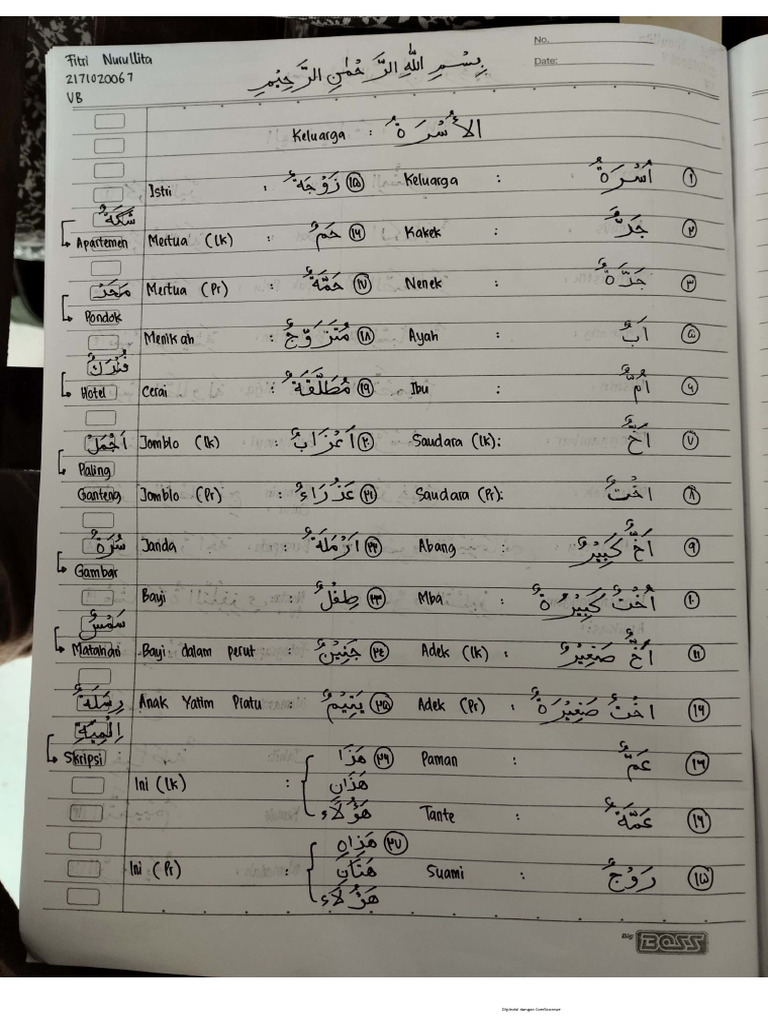 Fitri Nurullita
2171020067
VB
بِسْمِ اللَّهِ الرَّحْمٰنِ الرَّحِيْمِ
No.
Date:
Keluarga : الأُسْرَةُ
١ أُسْرَةٌ : Keluarga
٢ جَدٌّ : Kakek
٣ جَدَّةٌ : Nenek
٥ أَبٌ : Ayah
٦ أُمٌّ : Ibu
٧ أَخٌ : Saudara (lk):
٨ اخْتٌ Saudara (Pr):
٩ أَخٌ كَبِيْرٌ : Abang
١٠ أُخْتٌ كَبِيْرَةٌ : Mba
١١ أَخٌ صَغِيْرٌ : Adek (lk)
اخْتٌ صَغِيْرَةٌ : Adek (Pr)
عَمٌّ : Paman
عَمَّةٌ : Tante
١٥ زَوْجٌ : Suami
١٥ زَوْجَةٌ : Istri
١٦ حَمٌ : Mertua (lk)
١٧ حَمَّةٌ : Mertua (Pr)
١٨ مُتَزَوِّجٌ : Menikah
١٩ مُطَلَّقَةٌ : Cerai
٢٠ أَعْزَابٌ : Jomblo (lk)
٢١ عَذْرَاءُ : Jomblo (Pr)
٢٢ اَرْمَلَةٌ : Janda
٢٣ طِفْلٌ : Bayi
٢٤ جَنِيْنٌ : Bayi dalam perut
٢٥ يَتِيْمٌ : Anak Yatim Piatu
٢٦ هَذَا
هَذَانِ : Ini (lk)
هَؤُلَاءِ
٢٧ هَذِهِ
هَتَانِ : Ini (Pr)
هَؤُلَاءِ
شَقَةٌ
Apartemen
Pondok
فُنْدُكٌ
Hotel
اَجْمَلُ
Paling
Ganteng
Gambar
شَمْسٌ
Matahari
Skripsi
Big BOSS